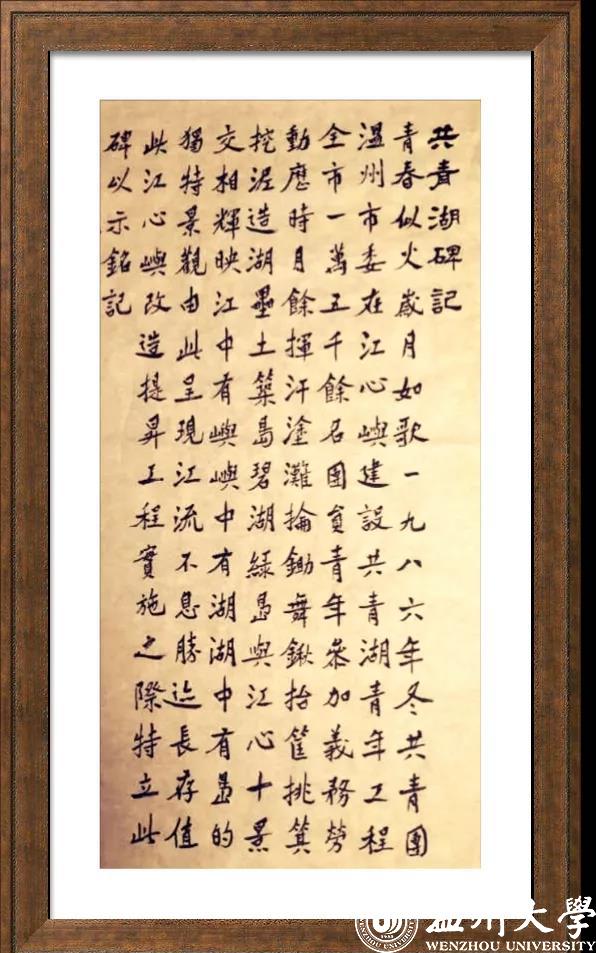 共青湖碑記
青春似火歲月如歌一九八六年冬共青團
溫州市委在江心嶼建設共青湖青年工程
全市一萬五千餘名團員青年參加義務勞
動歷時月餘揮汗塗灘掄鋤舞鍬抬筐挑箕
挖泥造湖壘土築島碧湖綠島與江心十景
交相輝映江中有嶼嶼中有湖湖中有島的
獨特景觀由此呈現江流不息勝迹長存值
此江心嶼改造提昇工程實施之際特立此
碑以示銘記
溫州大學
WENZHOU UNIVERSITY